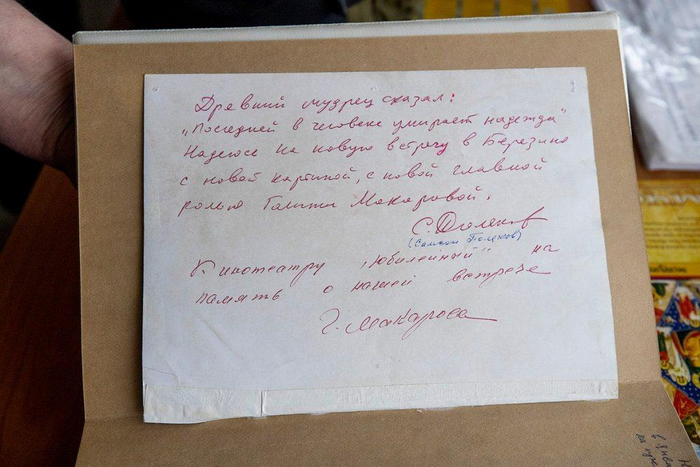 Древний мудрец сказал:
„Последней в человеке умирает надежда"
Надеюсь на новую встречу в Березино
с новой картиной, с новой главной
ролью Галины Макаровой.
С. Поляков
(Самсон Поляков)
Кинотеатру „Юбилейный" на
память о нашей встрече
Г. Макарова